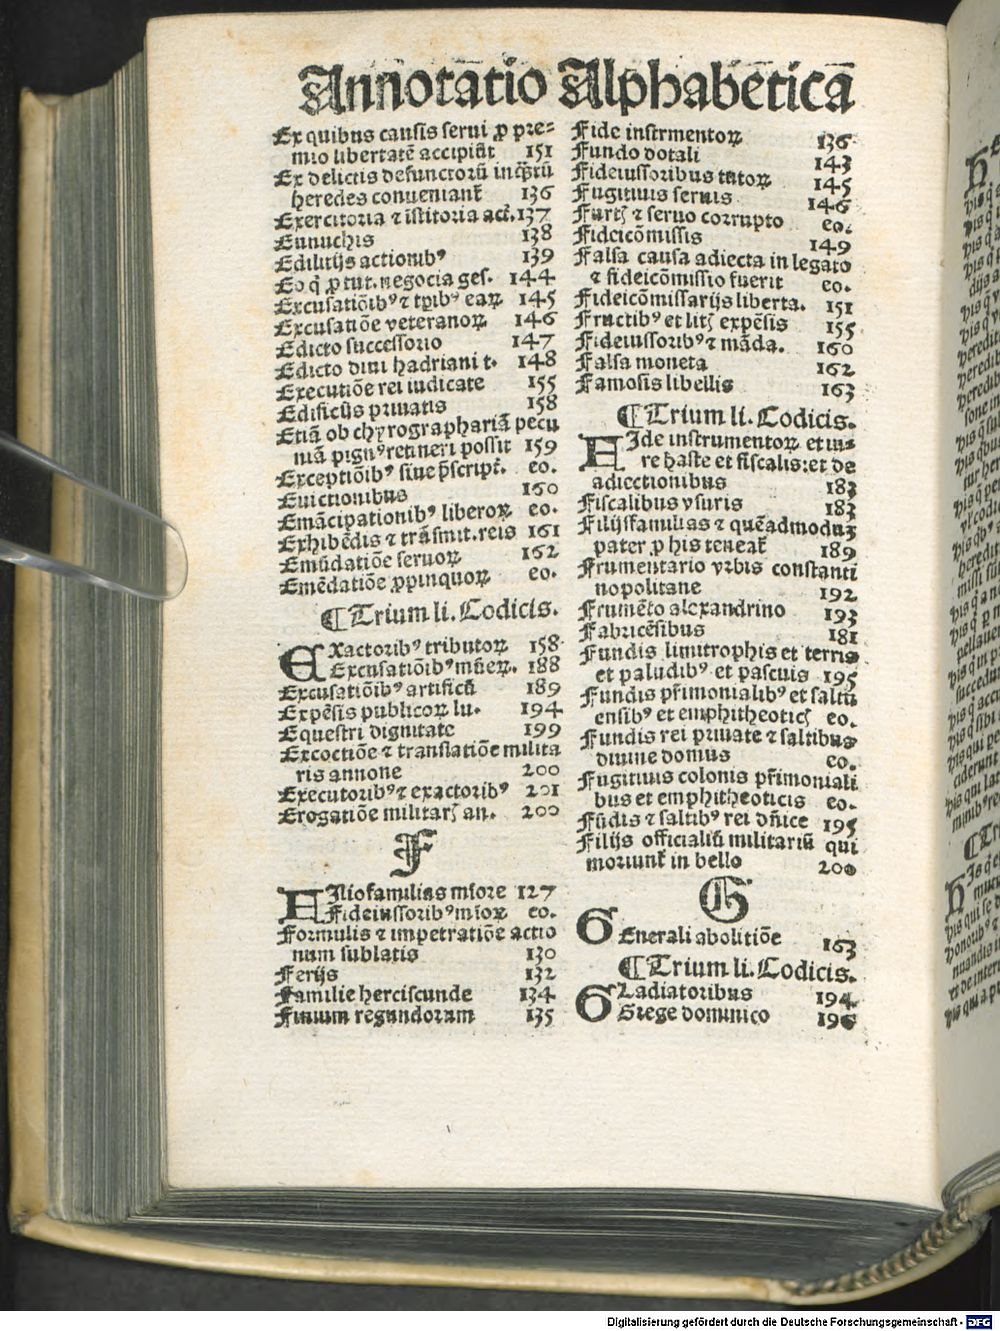 Annotatio Alphabetica
Ex quibus causis serui ꝓ pre⸗
mio libertatē accipiāt 151
Ex delictis defunctorū inq̄ꝫtū
heredes conueniant᷑ 136
Exercitoria ⁊ īstitoria act̄. 137
Eunuchis 138
Edilitijs actionibꝰ 139
Eo q̄ ꝓ tut. negocia ges. 144
Excusatiōibꝰ ⁊ tꝑibꝰ eaꝝ 145
Excusatiōe veteranoꝝ 146
Edicto successorio 147
Edicto diui hadriani t. 148
Executiōe rei iudicate 155
Edificijs priuatis 158
Etiā ob chyrographariā pecu
niā pignꝰ retineri possit 159
Exceptiōibꝰ siue p̄script̄. eo.
Euictionibus 160
Emācipationibꝰ liberoꝝ eo.
Exhibēdis ⁊ trāsmit. reis 161
Emūdatiōe seruoꝝ 162
Emēdatiōe ꝓpinquoꝝ eo.
¶ Trium li. Codicis.
Exactoribꝰ tributoꝝ 158
Excusatiōibꝰ mūeꝝ. 188
Excusatiōibꝰ artificū 189
Expēsis publicoꝝ lu. 194
Equestri dignitate 199
Excoctiōe ⁊ translatiōe milita
ris annone 200
Executoribꝰ ⁊ exactoribꝰ 201
Erogatiōe militarꝭ an. 200
F
Filiofamilias miore 127
Fideiussoribꝰ mioꝝ eo.
Formulis ⁊ impetratiōe actio
num sublatis 130
Ferijs 132
Familie herciscunde 134
Finium regundorum 135
Fide instrmentoꝝ 136
Fundo dotali 143
Fideiussoribus tutoꝝ 145
Fugitiuis seruis 146
Furtꝭ ⁊ seruo corrupto eo.
Fideicōmissis 149
Falsa causa adiecta in legato
⁊ fideicōmissio fuerit eo.
Fideicōmissarijs liberta. 151
Fructibꝰ et litꝭ expēsis 155
Fideiussoribꝰ ⁊ māda. 160
Falsa moneta 162
Famosis libellis 163
¶ Trium li. Codicis.
FIde instrumentoꝝ et iu⸗
re haste et fiscalis: et de
adiectionibus 183
Fiscalibus vsuris 183
Filijsfamilias ⁊ quēadmoduꝫ
pater ꝓ his teneat᷑ 189
Frumentario vrbis constanti
nopolitane 192
Frumēto alexandrino 193
Fabricēsibus 181
Fundis limitrophis et terris
et paludibꝰ et pascuis 195
Fundis pr̄imonialibꝰ et saltu
ensibꝰ et emphitheoticꝭ eo.
Fundis rei priuate ⁊ saltibus
diuine domus eo.
Fugitiuis colonis pr̄imoniali
bus et emphitheoticis eo.
Fūdis ⁊ saltibꝰ rei dn̄ice 195
Filijs officialiū militariū qui
moriunt᷑ in bello 200
G
GEnerali abolitiōe 163
¶ Trium li. Codicis.
GLadiatoribus 194
Grege dominico 196
Digitalisierung gefördert durch die Deutsche Forschungsgemeinschaft - DFG